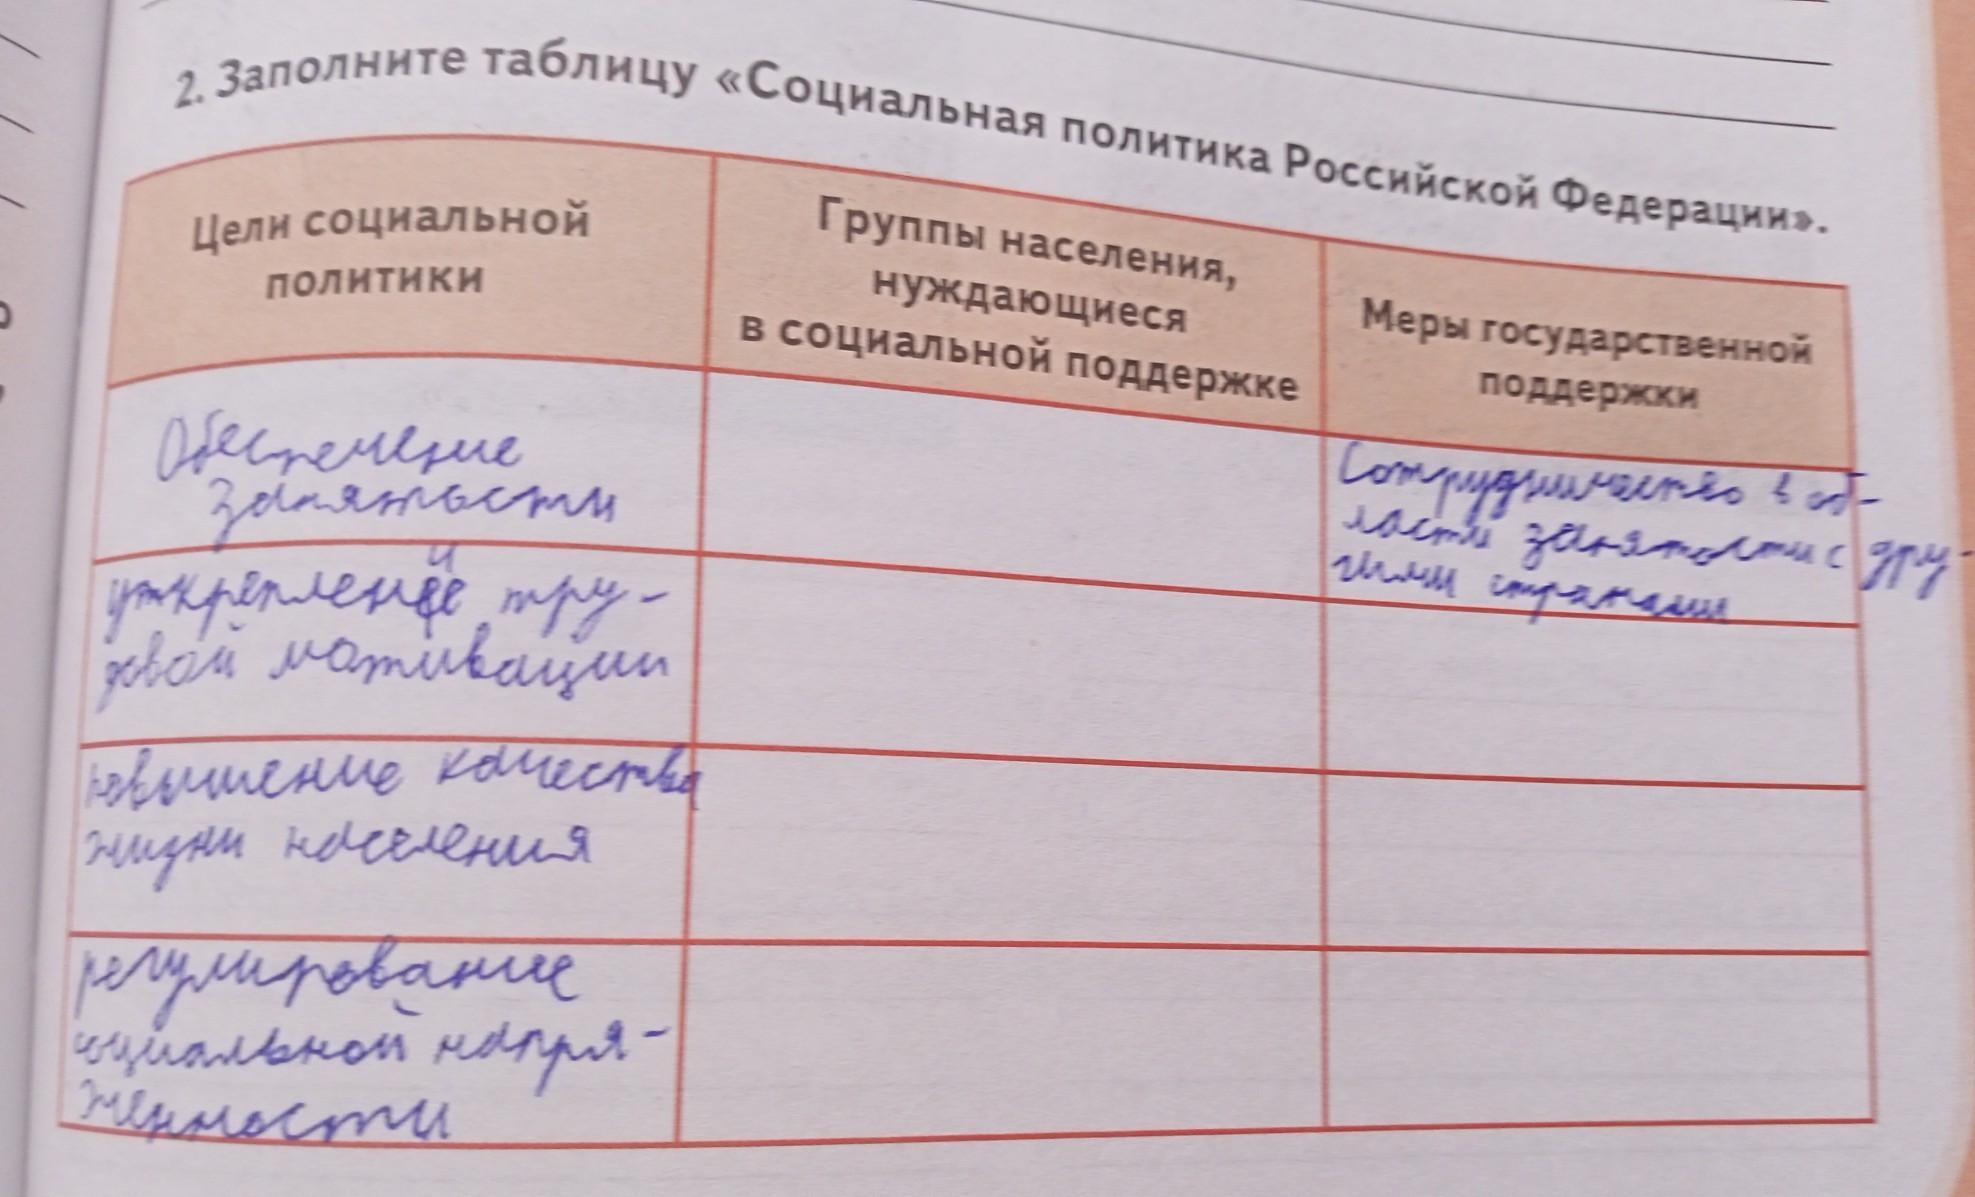 2. Заполните таблицу «Социальная политика Российской Федерации».
Цели социальной
политики
Группы населения,
нуждающиеся
в социальной поддержке
Меры государственной
поддержки
Обеспечение
занятости
Сотрудничество в об-
ласти занятости с дру-
гими странами
укрепление тру-
довой мотивации
повышение качества
жизни населения
регулирование
социальной напря-
женности